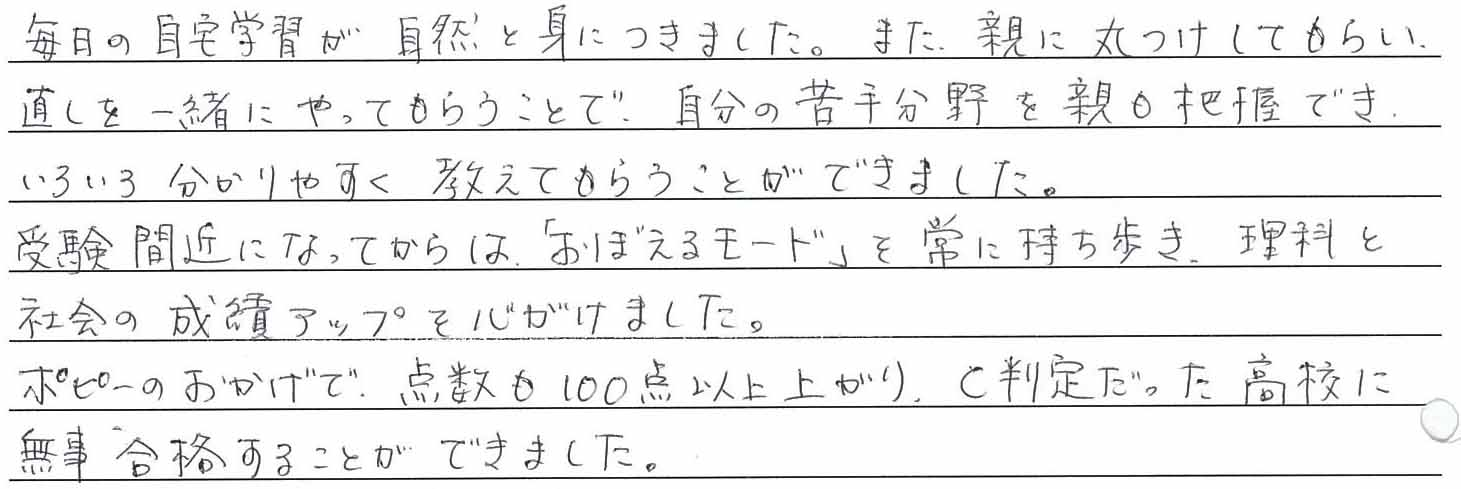 毎日の自宅学習が自然と身につきました。また、親に丸つけしてもらい、
直しを一緒にやってもらうことで、自分の苦手分野を親も把握でき、
いろいろ分かりやすく教えてもらうことができました。
受験間近になってからは、「おぼえるモード」を常に持ち歩き、理科と
社会の成績アップを心がけました。
ポピーのおかげで、点数も100点以上上がり、C判定だった高校に
無事合格することができました。